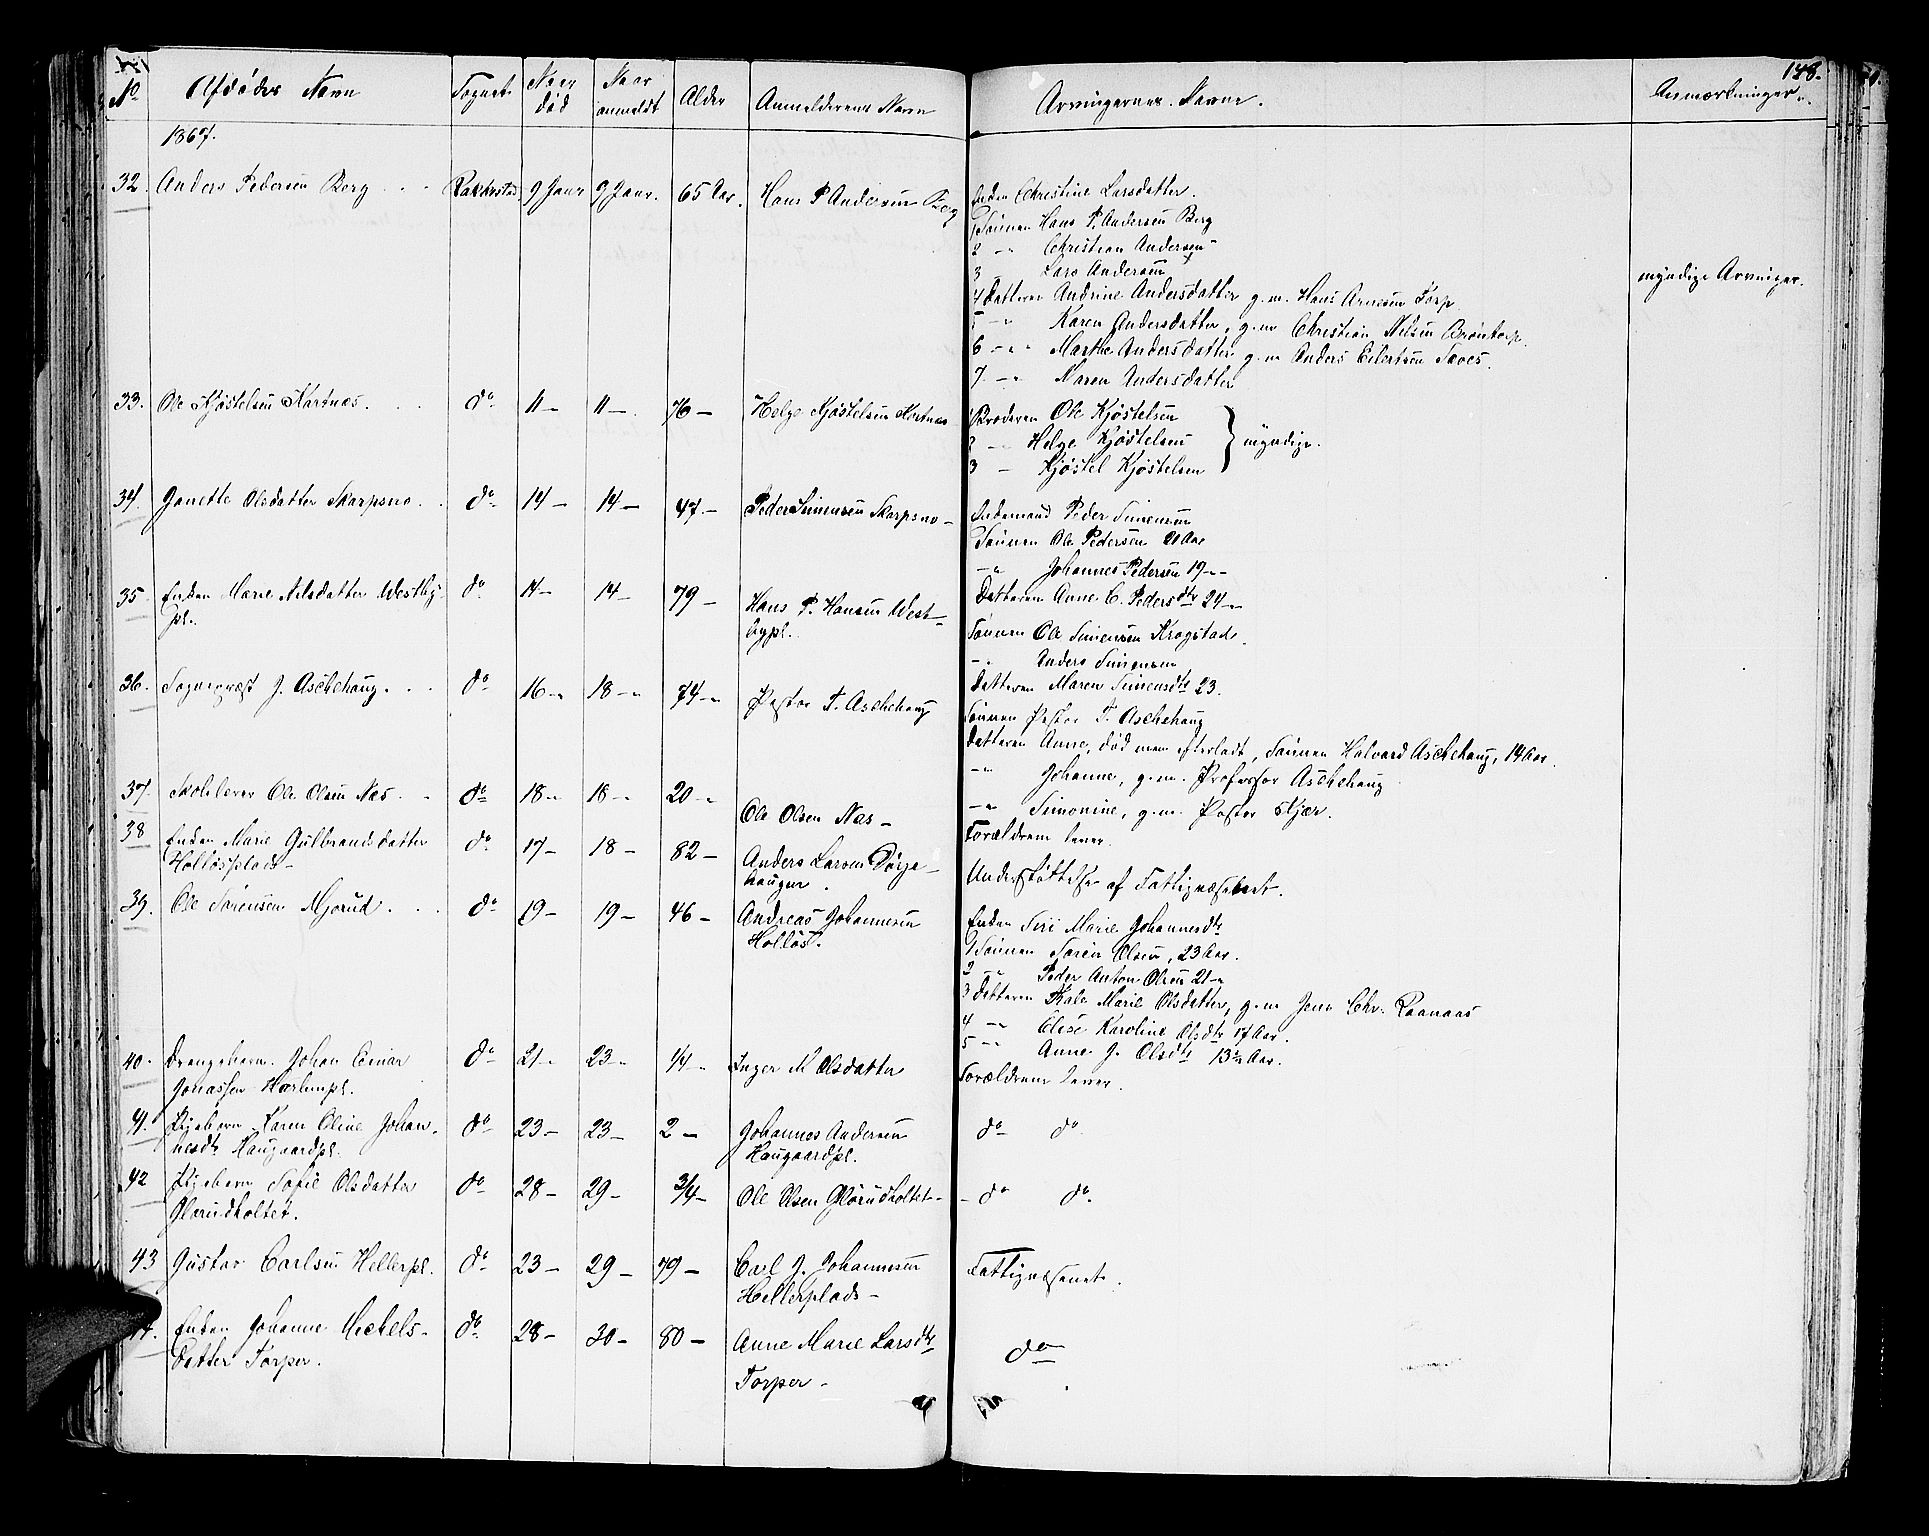 148.
No Afdødes Navn Sognet Naar død Naar anmeldt Alder Anmelderens Navn Arvingernes Navne. Anmærkninger.
1867.
32. Anders Pedersen Berg Rakkestad 9 Janr 9 Janr. 65 Aar. Hans P Andersen Berg Enken Christine Larsdatter.
1 Sønnen Hans P. Andersen Berg
2 -"- Christian Andersen
3 - Lars Andersen
myndige Arvinger.
4 Datteren Andrine Andersdatter g. m. Hans Arnesen Torp
5 -"- Karen Andersdatter, g. m Christian Nilsen
6 -"- Marthe Andersdatter g. m Anders Eilertsen
7. -"- Maren Andersdatter
33. Ole Kjøstelsen Kartnæs. do. 11 - 11 - 76 - Helge Kjøstelsen Kartnæs 1 Broderen Ole Kjøstelsen
2 -"- Helge Kjøstelsen } myndige.
3 - Kjøstel Kjøstelsen
34. Janette Olsdatter Skarpsno. do. 14 - 14 - 47. - Peder Simensen Skarpsno - Enkemand Peder Simensen
Sønnen Ole Pedersen 21 Aar
-"- Johannes Pedersen 19 -"-
Datteren Anne C. Pedersdtr 24 -"-
35. Enken Marie Nilsdatter Westby- do. 14 - 14 - 79 - Hans P. Hansen West-
pl. bypl.
Sønnen Ole Simensen Krogstad.
-"- Anders Simensen
Datteren Maren Simensdtr 23.
36. Sogneprest J. Aschehoug. do 16 -"- 18 -"- 74 -"- Pastor T. Aschehoug Sønnen Pastor T. Aschehoug
Datteren Anne, død men efterladt, Sønnen Halvard Aschehoug, 14 Aar.
-"- Johanne, g. m. Professor Aschehoug
-"- Simonine, g. m. Pastor Kjær.
37. Skolelærer Ole Olsen Næs. do 18 -"- 18 -"- 20 -"- Ole Olsen Næs - Forældrene lever.
38 Enken Marie Gulbrandsdatter do. 17 - 18 - 82 - Anders Larsen Dørje-
Holløsplads - haugen. Understøttelse af Fattigvæsenet.
39. Ole Sørensen Mjørud. do 19 - 19 - 46 - Andreas Johannesen
Holløs. Enken Siri Marie Johannesdtr
1 Sønnen Søren Olsen, 23 Aar.
2 -"- Peder Anton Olsen 21 -"-
3 Datteren Marie Olsdatter, g. m Jens Chr. Raanaas
4 -"- Elise Karoline Olsdtr 17 Aar.
5 -"- Anne J. Olsdtr 13½ Aar.
40. Drengebarn Johan Einar do 21 -"- 23 -"- 1/4 -"- Inger M Olsdatter Forældrene lever.
Jonassen Harlempl.
41. Pigebarn Karen Oline Johan- do 23 - 23 - 2 - Johannes Andersen do do
nesdtr Haugaardpl. Haugaardpl.
42 Pigebarn Sofie Olsdatter do 28 - 29 - 3/4 - Ole Olsen Glørudholtet - do do.
Glørudholtet.
43 Gustav Carlsen Hellerpl. do 23 - 29 - 79 - Carl J. Johannesen Fattigvæsenet.
Hellerplads -
44. Enken Johanne Mickels- do 28 - 30 - 80 - Anne Marie Larsdtr do
datter Torper. Torper -